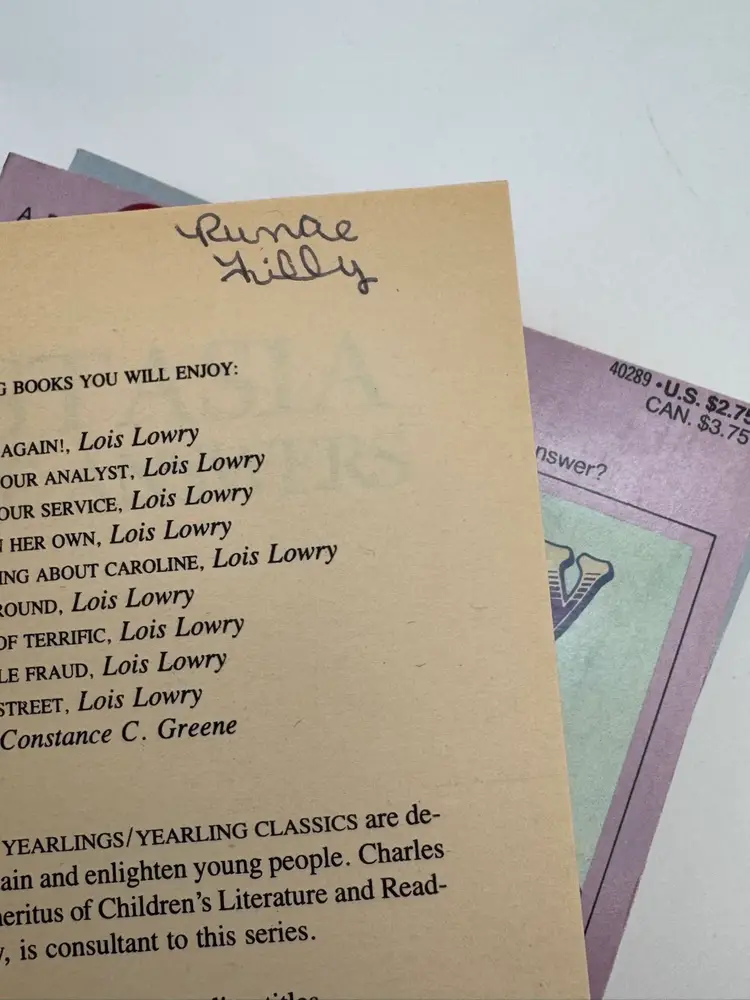 A
Runae
Filly
G BOOKS YOU WILL ENJOY:
AGAIN!, Lois Lowry
OUR ANALYST, Lois Lowry
OUR SERVICE, Lois Lowry
N HER OWN, Lois Lowry
ING ABOUT CAROLINE, Lois Lowry
ROUND, Lois Lowry
OF TERRIFIC, Lois Lowry
LE FRAUD, Lois Lowry
STREET, Lois Lowry
Constance C. Greene
YEARLINGS/YEARLING CLASSICS are de-
ain and enlighten young people. Charles
eritus of Children's Literature and Read-
y, is consultant to this series.
40289 • U.S. $2.75
CAN. $3.75
nswer?